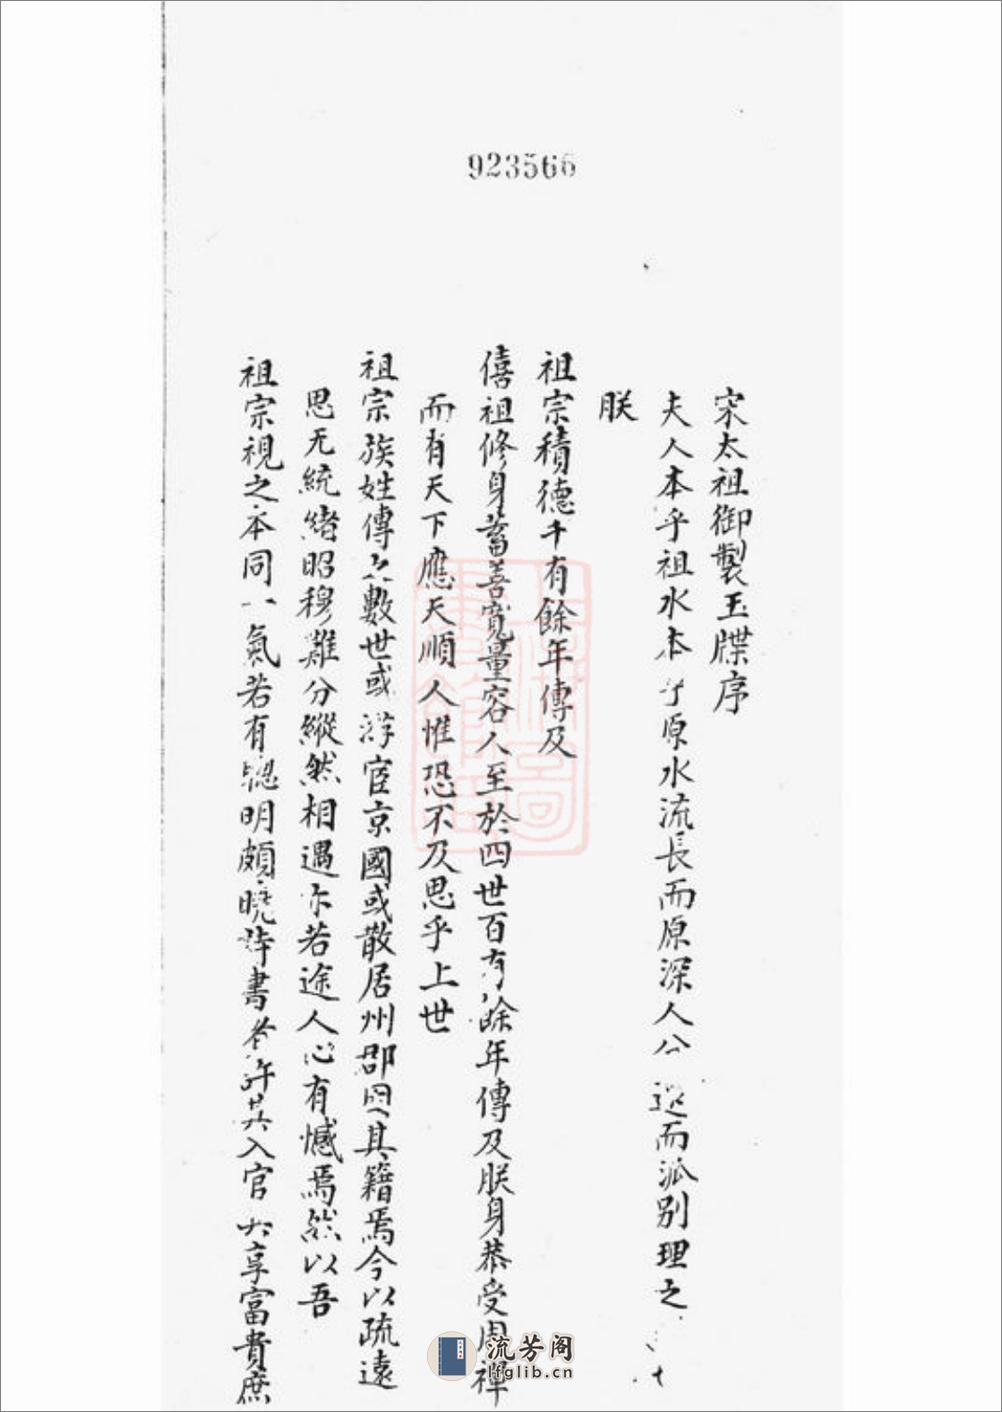 923566
宋太祖御製玉牒序
夫人本乎祖水本乎原水流長而原深人公遠而派別理之
朕
祖宗積德千有餘年傳及
僖祖修身蓄善寬量容人至於四世百有餘年傳及朕身恭受周禪
而有天下應天順人惟恐不及思乎上世
祖宗族姓傳六數世或游宦京國或散居州郡因其籍焉今以疏遠
思无統緒昭穆難分縱然相遇亦若途人心有憾焉然以吾
祖宗視之本同一氣若有聰明頗曉詩書者許其入官共享富貴庶
流芳阁
lfglib.cn